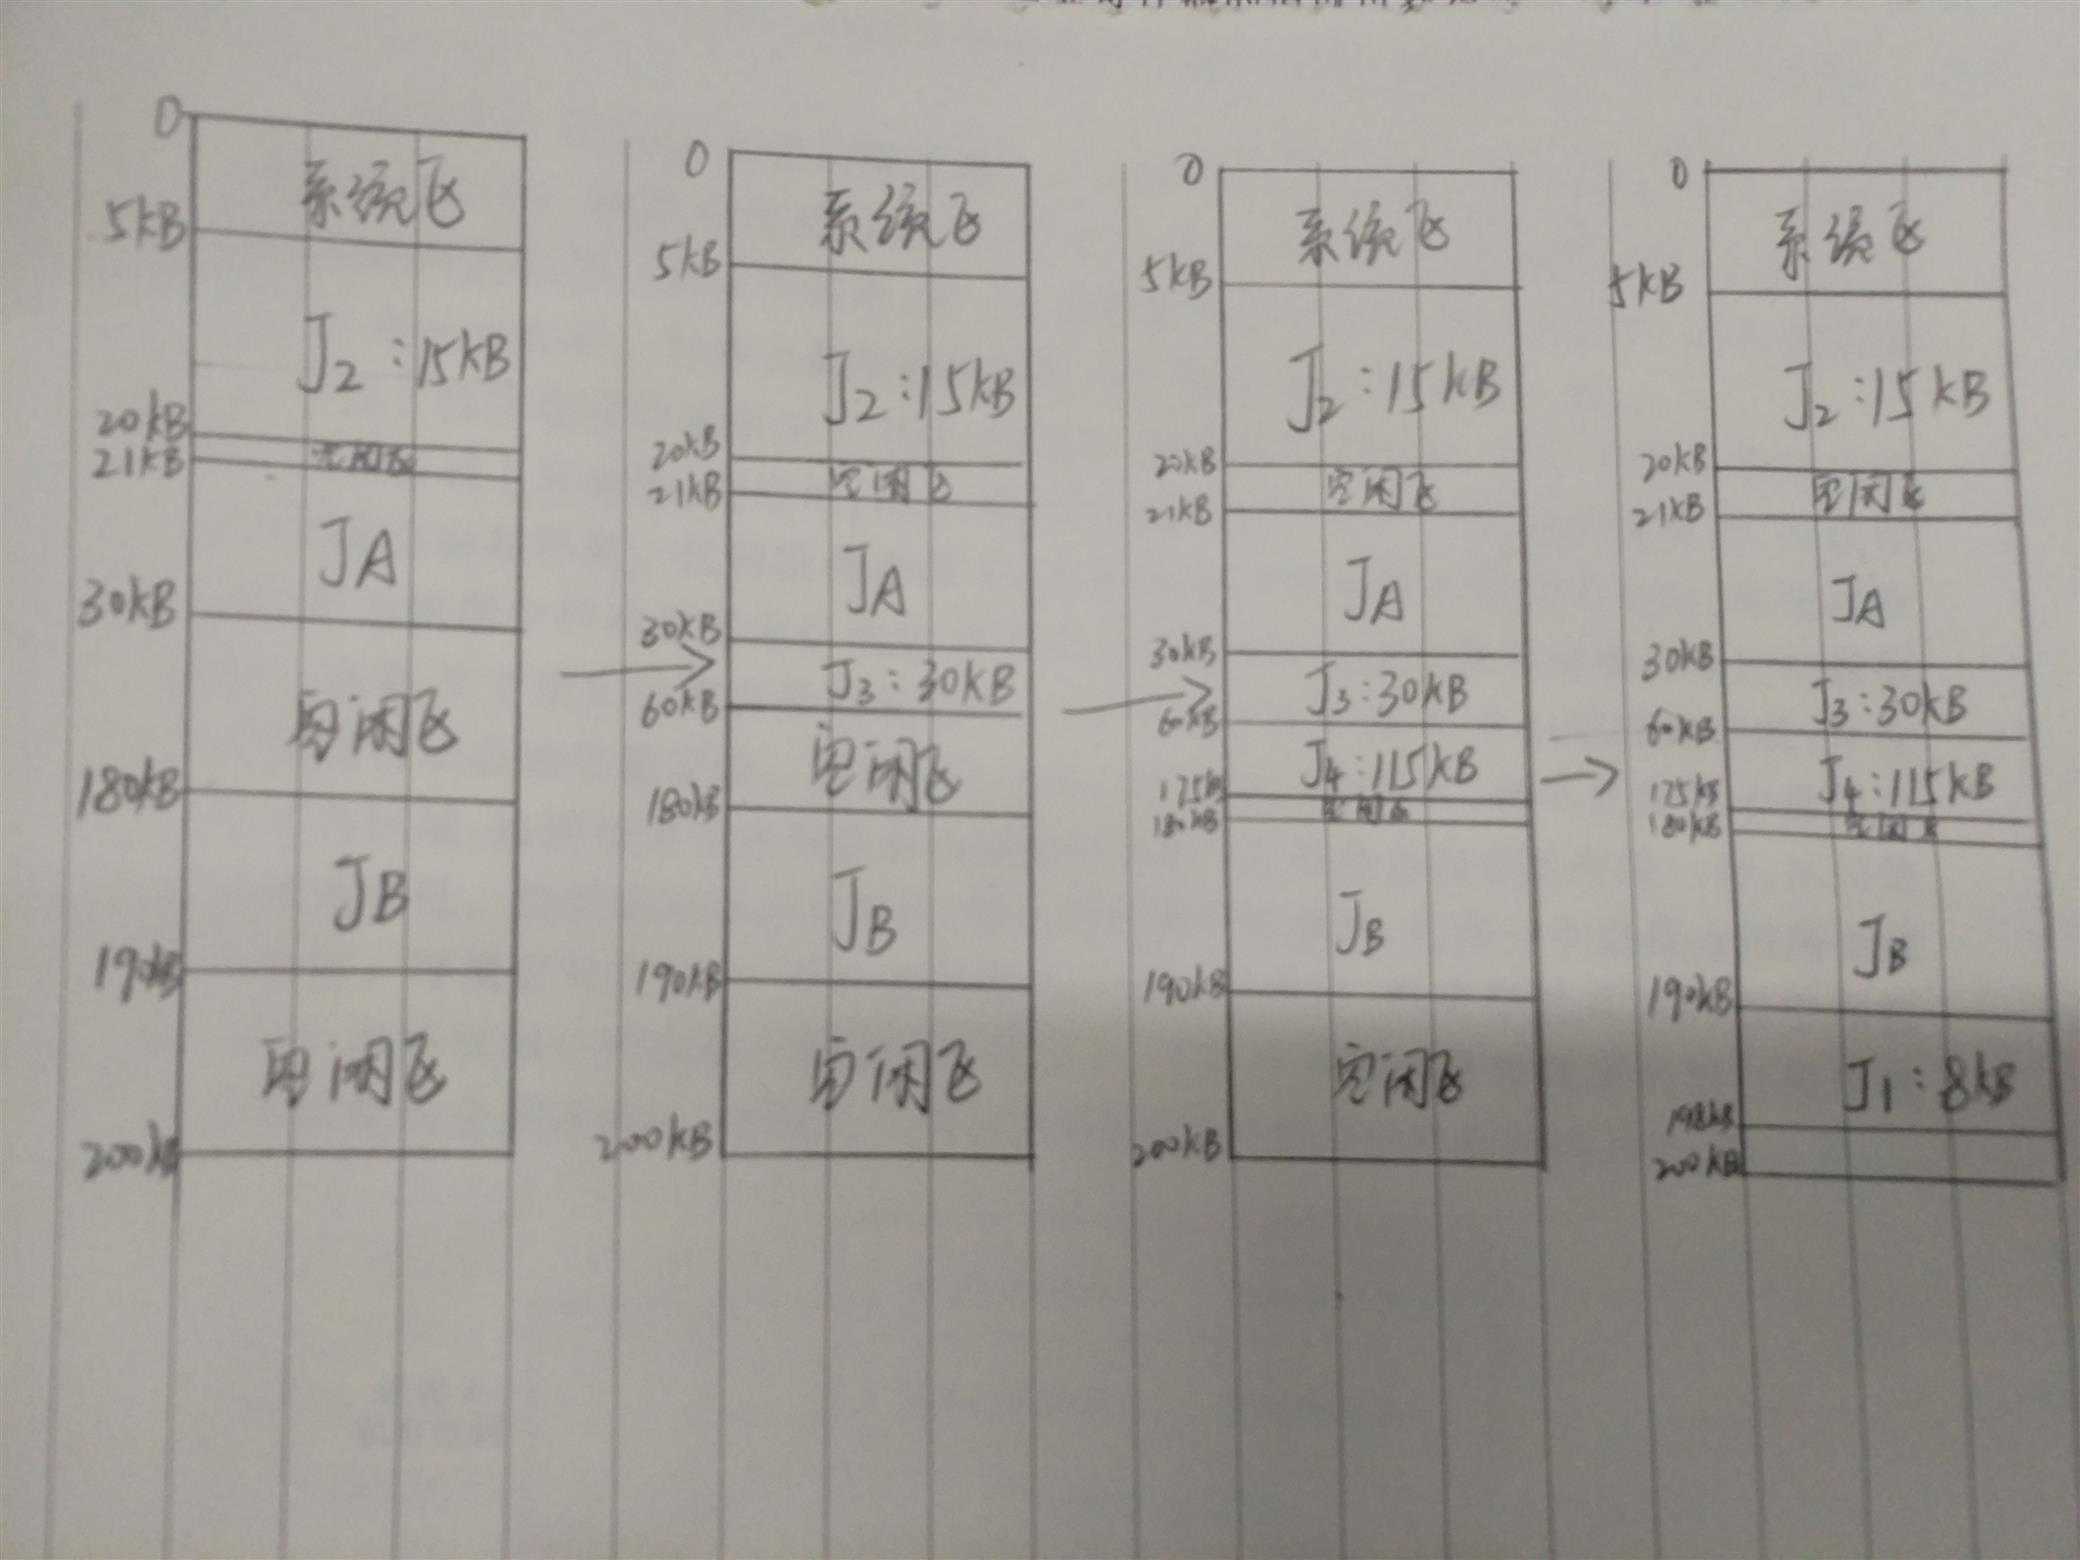 0
系统区
5kB
J2:15kB
20kB
21kB
空闲区
JA
30kB
空闲区
180kB
JB
190kB
空闲区
200kB
0
系统区
5kB
J2:15kB
20kB
空闲区
21kB
JA
30kB
J3:30kB
60kB
空闲区
180kB
JB
190kB
空闲区
200kB
0
系统区
5kB
J2:15kB
20kB
空闲区
21kB
JA
30kB
J3:30kB
60kB
J4:115kB
175kB
空闲区
180kB
JB
190kB
空闲区
200kB
0
系统区
5kB
J2:15kB
20kB
空闲区
21kB
JA
30kB
J3:30kB
60kB
J4:115kB
175kB
空闲区
180kB
JB
190kB
J1:8kB
198kB
200kB